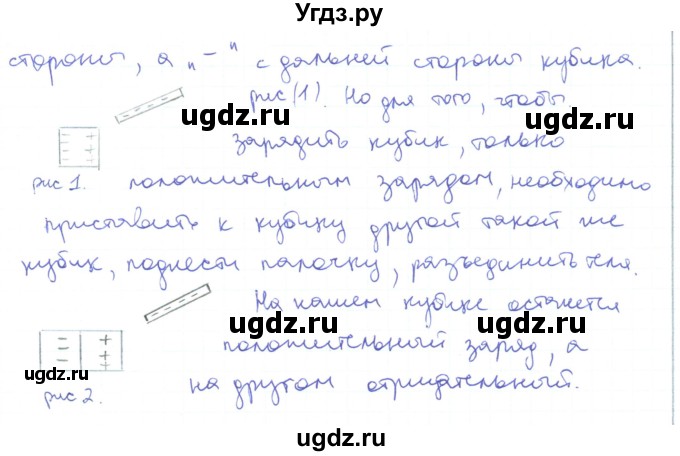 Угдз.ру
стороны, а „–" с дальней стороны кубика.
рис (1). Но для того, чтобы
ugdz.ru ugdz.ru
зарядить кубик, только
рис 1. положительным зарядом, необходимо
ugdz.ru
приставить к кубику другой такой же
кубик, поднести палочку, разъединить тела.
ugdz.ru
На нашем кубике останется
ugdz.ru ugdz.ru
положительный заряд, а
ugdz.ru
на другом отрицательный.
рис 2.
ugdz.ru